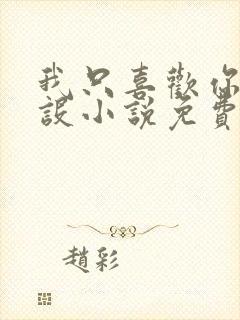 我只喜歡你
設小說免費
趙彩